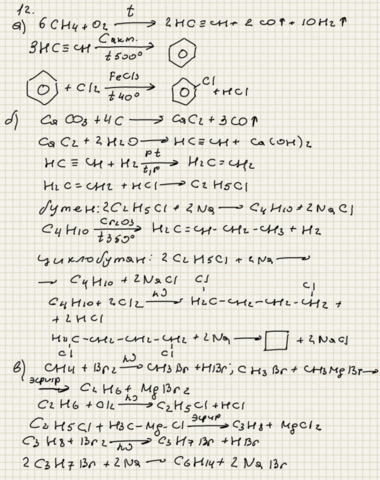 12.
а) 6CH4 + O2 —t→ 2HC≡CH + 2CO↑ + 10H2↑
3HC≡CH —C акт. t500°→
+ Cl2 —FeCl3 t40°→ Cl + HCl
б) CaCO3 + 4C → CaC2 + 3CO↑
CaC2 + 2H2O → HC≡CH + Ca(OH)2
HC≡CH + H2 —Pt t,p→ H2C=CH2
H2C=CH2 + HCl → C2H5Cl
бутен: 2C2H5Cl + 2Na → C4H10 + 2NaCl
C4H10 —Cr2O3 t350°→ H2C=CH–CH2–CH3 + H2
циклобутан: 2C2H5Cl + 2Na →
→ C4H10 + 2NaCl
C4H10 + 2Cl2 —hν→ H2C(Cl)–CH2–CH2–CH2(Cl) +
+ 2HCl
H2C(Cl)–CH2–CH2–CH2(Cl) + 2Na → □ + 2NaCl
в) CH4 + Br2 —hν→ CH3Br + HBr; CH3Br + CH3MgBr →
—эфир→ C2H6 + MgBr2
C2H6 + Cl2 —hν→ C2H5Cl + HCl
C2H5Cl + H3C–Mg–Cl —эфир→ C3H8 + MgCl2
C3H8 + Br2 —hν→ C3H7Br + HBr
2C3H7Br + 2Na → C6H14 + 2NaBr